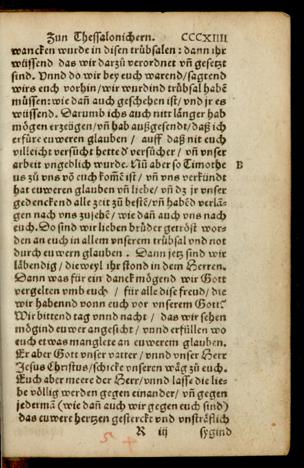 Zun Thessalonichern. CCCXIIII
wancken wurde in disen trübsalen : dann ihr
wüssend das wir darzů verordnet vñ gesetzt
sind. Vnnd do wir bey euch warend/sagtend
wirs euch vorhin/wir wurdind trübsal habē
müssen: wie dañ auch geschehen ist/vnd jr es
wüssend. Darumb ichs auch nitt länger hab
mögen erzeügen/vñ hab außgesendt/daß ich
erfüre euweren glauben / auff daß nit euch
villeicht versůcht hette d'versůcher / vñ vnser
arbeit vngeblich wurde. Nū aber so Timothe B
us zů vns vō euch komē ist/ vñ vns verkündt
hat euweren glauben vñ liebe/ vñ dz jr vnser
gedenckend alle zeit zů bestē/vñ habēd verlā-
gen nach vns zůsehē/ wie dañ auch vns nach
euch. Do sind wir lieben brüder getröst wor-
den an euch in allem vnserem trübsal vnd not
durch euwern glauben . Dann jetz sind wir
läbendig / dieweyl ihr stond in dem Herren.
Dann was für ein danck mögend wir Gott
vergelten vmb euch / für alle dise freud/die
wir habennd vonn euch vor vnserem Gott?
Wir bittend tag vnnd nacht / das wir sehen
mögind euwer angesicht / vnnd erfüllen wo
euch et was manglete an euwerem glauben.
Er aber Gott vnser vatter / vnnd vnser Herr
Jesus Christus/schicke vnseren wäg zů euch.
Euch aber meere der Herr/vnnd lasse die lie-
be völlig werden gegen einander/ vñ gegen
jedermā (wie dañ auch wir gegen euch sind)
das euwere hertzen gesterckt vnd vnsträflich
R iij sygind